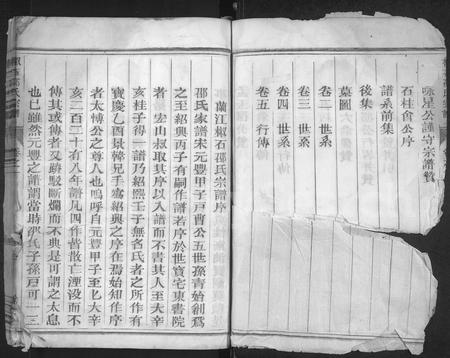 咏星公謹守宗譜贊
石柱會公序
譜系前集
後集
墓圖 六景
卷二 世系
卷三 世系
卷四 世系
卷五 行傳
蘭江椒石邵氏宗譜序
邵氏家譜宋元豐甲子戸曹公五世孫青始創爲
之至紹興丙子有嗣作譜若序於世寳宅東書院
者 宏山叔取其序以入譜而不書其人至夫辛
亥桂子得一譜乃紹熙壬子無名氏者之所作有
寳慶乙酉景韓兒手寫紹興之序在焉始知作序
者太博公之尊人也嗚呼自元豐甲子至巳大辛
亥二百二十有八年譜凡四作皆散亡湮没而不
傳其或傳者又踳駁斷爛而不典是可謂之太息
也巳雖然元豐之譜謂當時邵氏子孫戸可一三